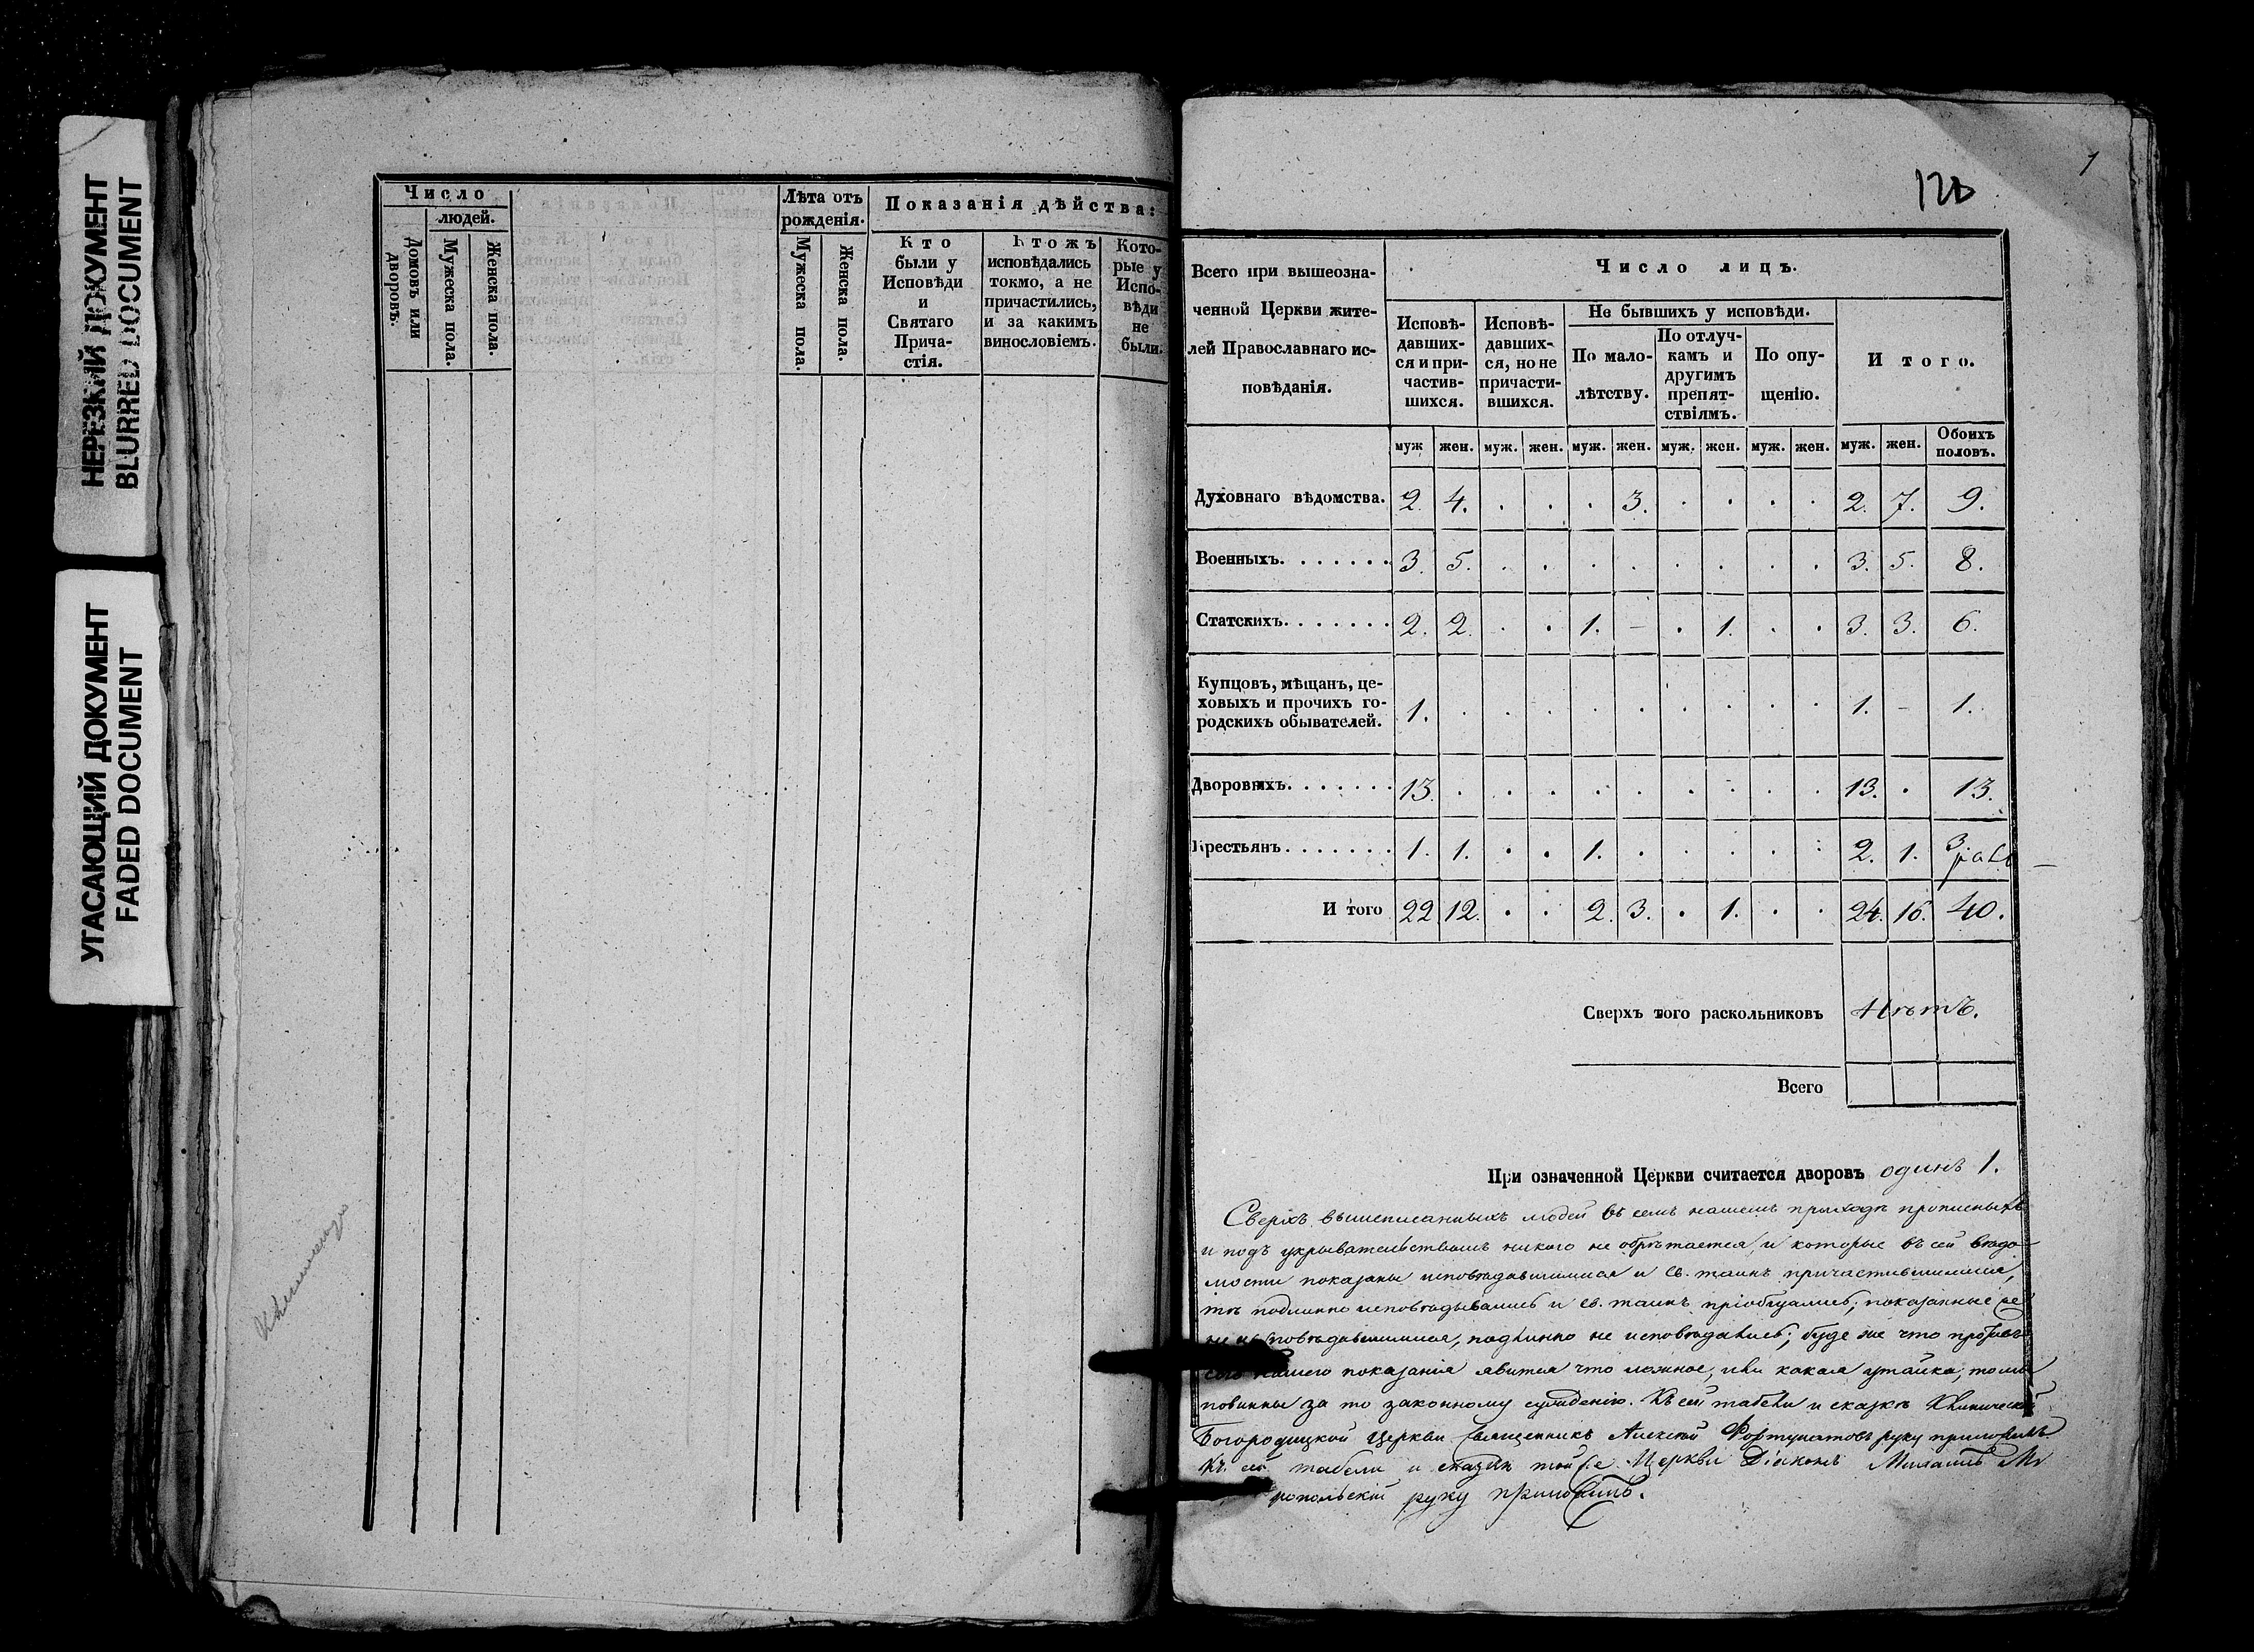 НЕРЕЗКИЙ ДОКУМЕНТ
BLURRED DOCUMENT
УГАСАЮЩИЙ ДОКУМЕНТ
FADED DOCUMENT
Число
людей.
Домовъ или дворовъ.
Мужеска пола.
Женска пола.
Лѣта отъ
рожденія.
Мужеска пола.
Женска пола.
Показанія дѣйства:
Кто
были у
Исповѣди
и
Святаго
Прича-
стія.
Ктожъ
исповѣдались
токмо, а не
причастились,
и за какимъ
винословіемъ.
Кото-
рые у
Испо-
вѣди
не
были.
7
Всего при вышеозна-
ченной Церкви жите-
лей Православнаго ис-
повѣданія.
Число лицъ.
Исповѣ-
давших-
ся и при-
частив-
шихся.
Исповѣ-
давших-
ся, но не
причасти-
вшихся.
Не бывшихъ у исповѣди.
По мало-
лѣтству.
По отлуч-
камъ и
другимъ
препят-
ствіямъ.
По опу-
щенію.
Итого.
муж жен. муж. жен. муж. жен. муж. жен. муж. жен. муж. жен. Обоихъ половъ.
Духовнаго вѣдомства. 2. 4. . . . 3. . . . . 2. 7. 9.
Военныхъ. . . . . . . 3. 5. . . . . . . . . 3. 5. 8.
Статскихъ. . . . . . . 2. 2. . . 1. – . 1. . . 3. 3. 6.
Купцовъ, мѣщанъ, це-
ховыхъ и прочихъ го-
родскихъ обывателей. 1. . . . . . . . . . 1. – 1.
Дворовыхъ. . . . . . . 13. . . . . . . . . . 13. . 13.
Крестьянъ . . . . . . . 1. 1. . . 1. . . . . . 2. 1. 3.
Итого 22. 12. . . 2. 3. . 1. . . 24. 16. 40.
Сверхъ того раскольниковъ Нѣтъ.
Всего
При означенной Церкви считается дворовъ одинъ 1.
Сверхъ вышеписанныхъ людей въ семъ нашемъ приходѣ прописныхъ
и подъ укрывательствомъ никого не обрѣтается, и которые въ сей вѣдо-
мости показаны исповѣдавшимися и св. таинъ причастившимися,
тѣ подлинно исповѣдывались и св. таинъ пріобщались; показанные же
не исповѣдавшимися, подлинно не исповѣдались; буде же что противъ
сего нашего показанія явится что ложное, или какая утайка, то мы
повинны за то законному сужденію. Къ сей табели и сказкѣ Клинической
Богородицкой Церкви Священникъ Алексѣй Фортунатовъ руку приложилъ.
Къ сей табели и сказкѣ той же Церкви Діаконъ Михаилъ
руку приложилъ.